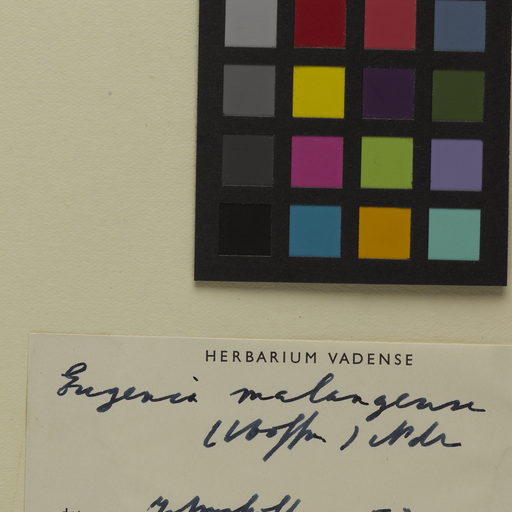 HERBARIUM VADENSE
Eugenia malangensis
(Hoffm) Ndz